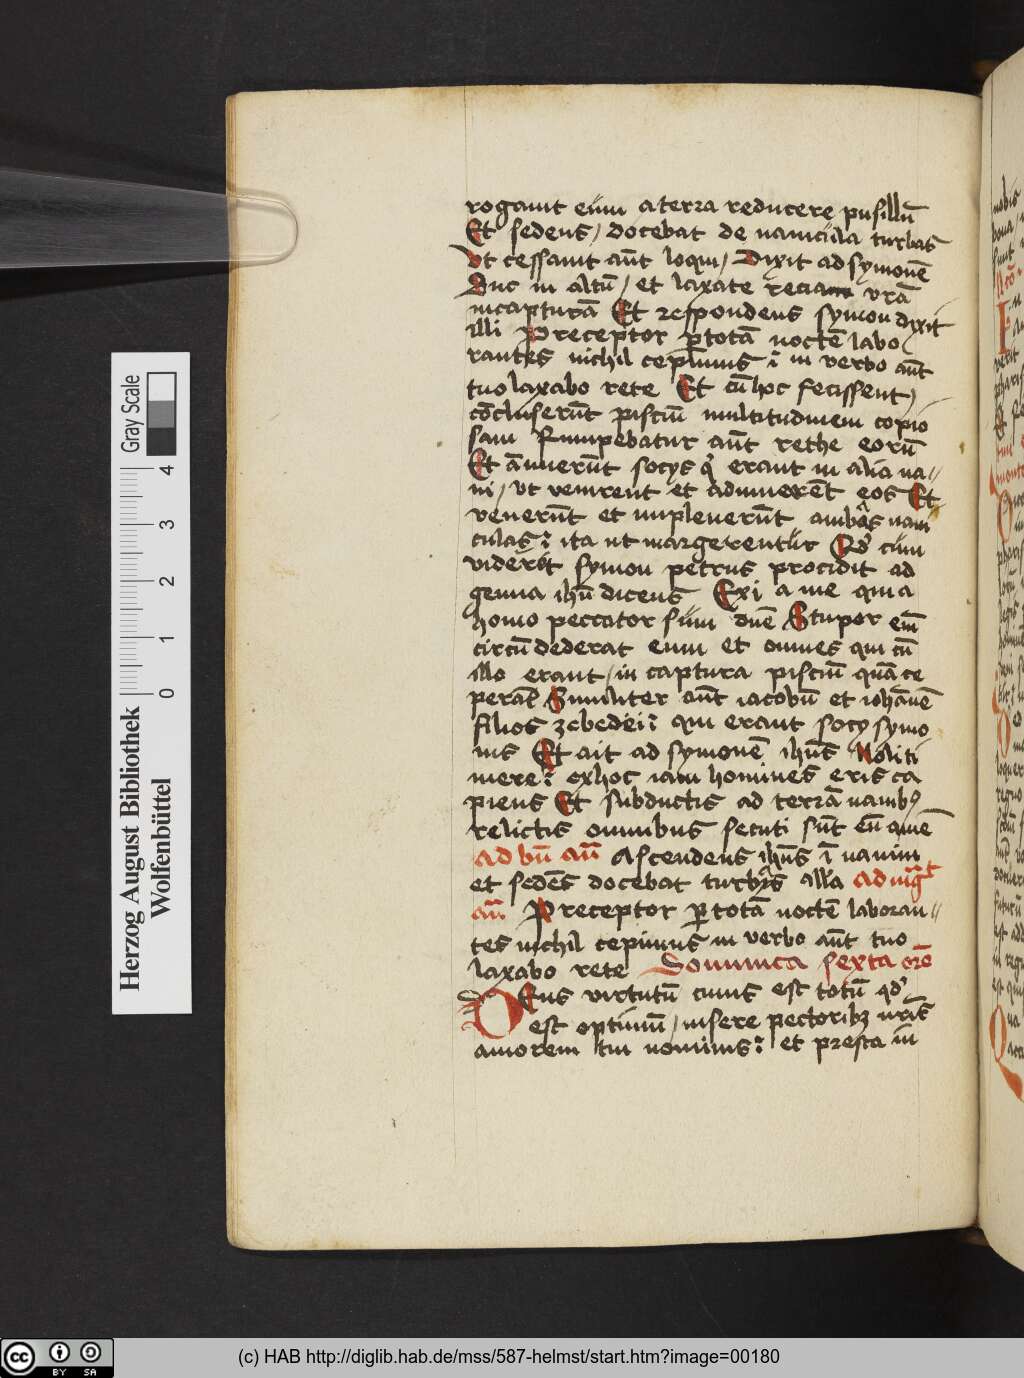 rogauit eūm a terra reducere pusillū
Et sedens / docebat de nauicula turbas
Vt cessauit aūt loqui / Dixit ad symonē
Duc in altū / et laxate recia vrā
in capturā Et respondens symon dixit
illi Preceptor p totā noctē labo
rantes nichil cepimus ī in verbo aūt
tuo laxabo rete Et cū hoc fecissent /
cōcluserūt pisciū multitudinem copio
sam Rumpebatur aūt rethe eorū
Et ānuerūt socys q̇ erant in alia na//
ui / vt venirent et adiuuerēt eos Et
venerūt et impleuerūt ambas naui
culas: ita ut margerentur Qd' cūm
viderit symon petrus procidit ad
genua ihū dicens Exi a me quia
homo peccator sūm dnē Stupor em̄
circū dederat eum et omnes qui cū
illo erant / in captura pisciū quā ce
perāt Similiter aūt iacobū et iohānē
filios zebedei: qui erant socy symo
nis Et ait ad symonē ihūs Noli ti
mere: exhoc iam homines eris ca
piens Et subductis ad terrā nauibꝰ
relictis omnibus secuti sūt eū amē
Ad bn̄ an̄ Ascendens ihūs ī nauim
et sedēs docebat turbas alla Ad mgͭ
an̄ Preceptor p totā noctē laboran//
tes nichil cepimus in verbo aūt tuo
laxabo rete Dominica sexta orō
DEus virtutū cuius est totū qd'
est optimū / insere pectoribꝫ nrīs
amorem tui nominis: et presta in
Herzog August Bibliothek
Wolfenbüttel
Gray Scale
0 1 2 3 4
cc BY SA
(c) HAB http://diglib.hab.de/mss/587-helmst/start.htm?image=00180